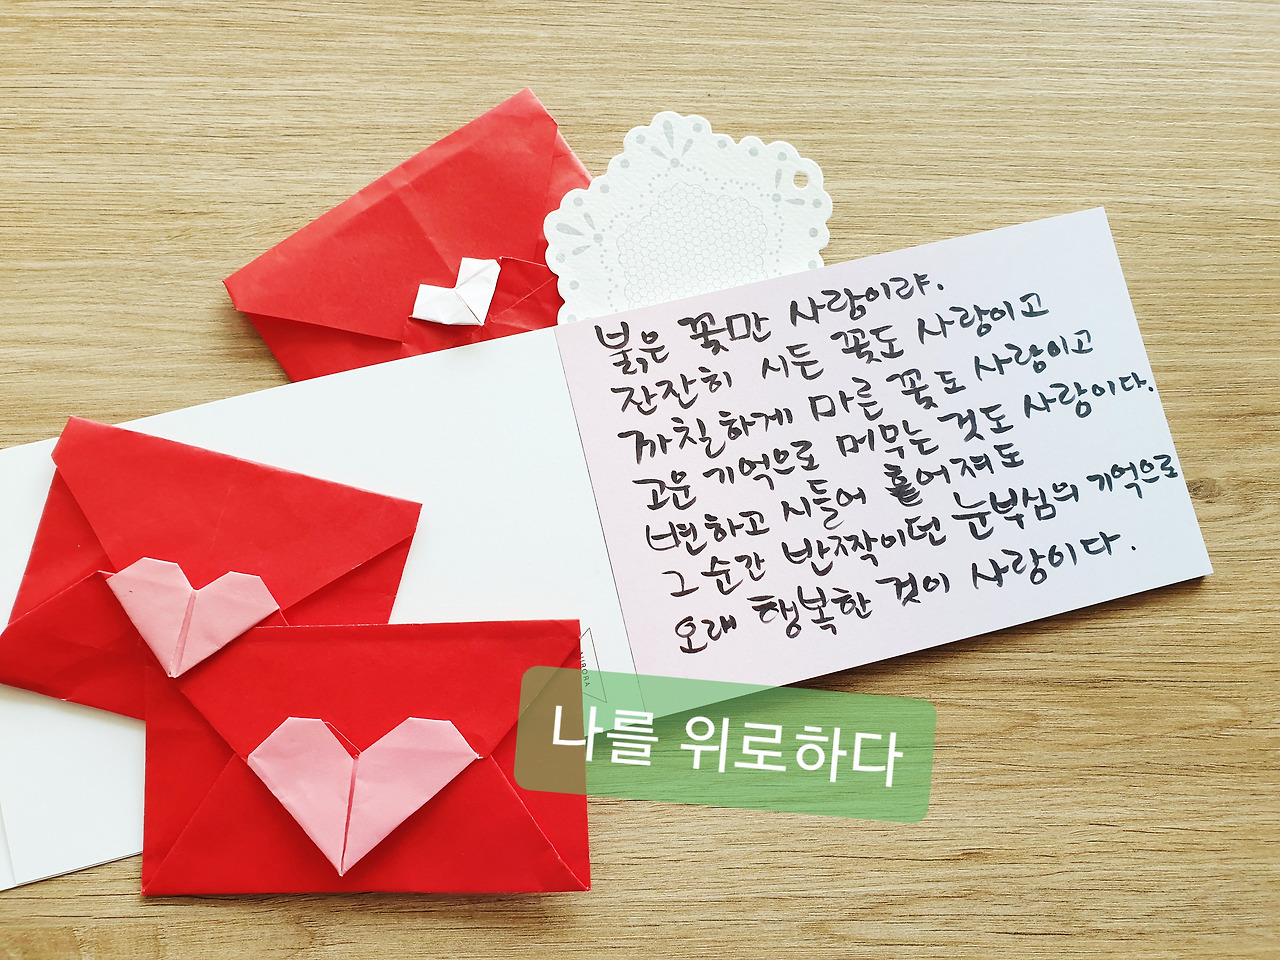 붉은 꽃만 사랑이랴.
잔잔히 시든 꽃도 사랑이고
까칠하게 마른 꽃도 사랑이고
고운 기억으로 머무는 것도 사랑이다.
변하고 시들어 흩어져도
그 순간 반짝이던 눈부심의 기억으로
오래 행복한 것이 사랑이다.
나를 위로하다